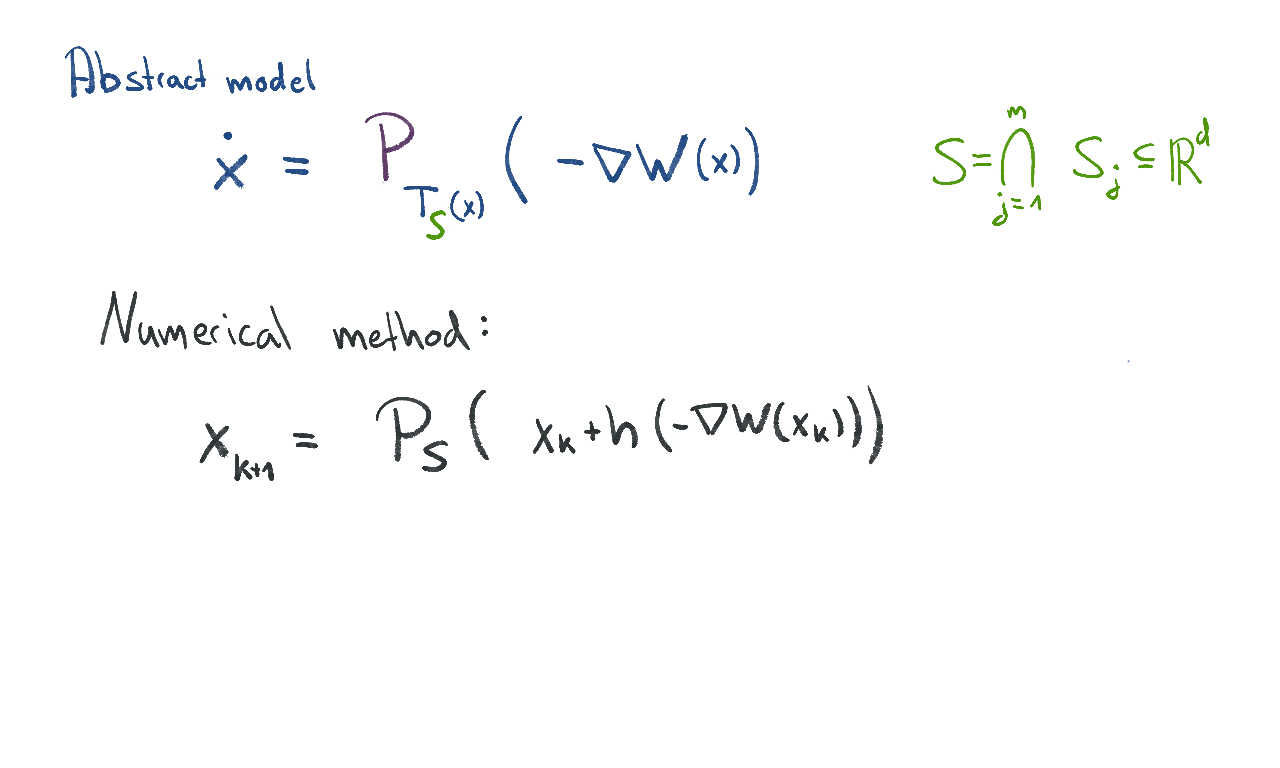 Abstract model
ẋ = P_{T_S(x)} ( -∇W(x))
S = ⋂_{j=1}^{m} S_j ⊆ ℝ^d
Numerical method:
x_{k+1} = P_S ( x_k + h (-∇W(x_k)))